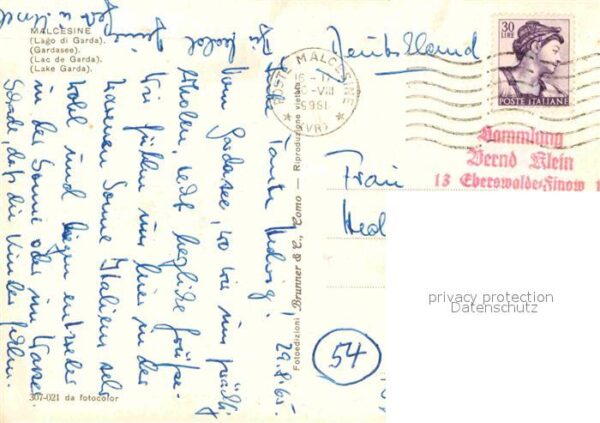 MALCESINE
(Lago di Garda).
(Gardasee).
(Lac de Garda).
(Lake Garda).
307-021 da fotocolor
29.8.65.
Liebe Tante Hedwig!
Vom Gardasee, wo wir uns prächtig
erholen, recht herzliche Grüsse.
Wir fühlen uns hier in der
warmen Sonne Italiens sehr
wohl und liegen entweder
in der Sonne oder im Wasser.
Schade, daß die Kinder fehlen.
Fotoedizioni Brunner & C., Como — Riproduzione vietata
POSTE MALCESINE
(VR)
30
LIRE
POSTE ITALIANE
Deutschland
Sammlung
Bernd Klein
13 Eberswalde-Finow 1
Frau
Hed
privacy protection
Datenschutz
54